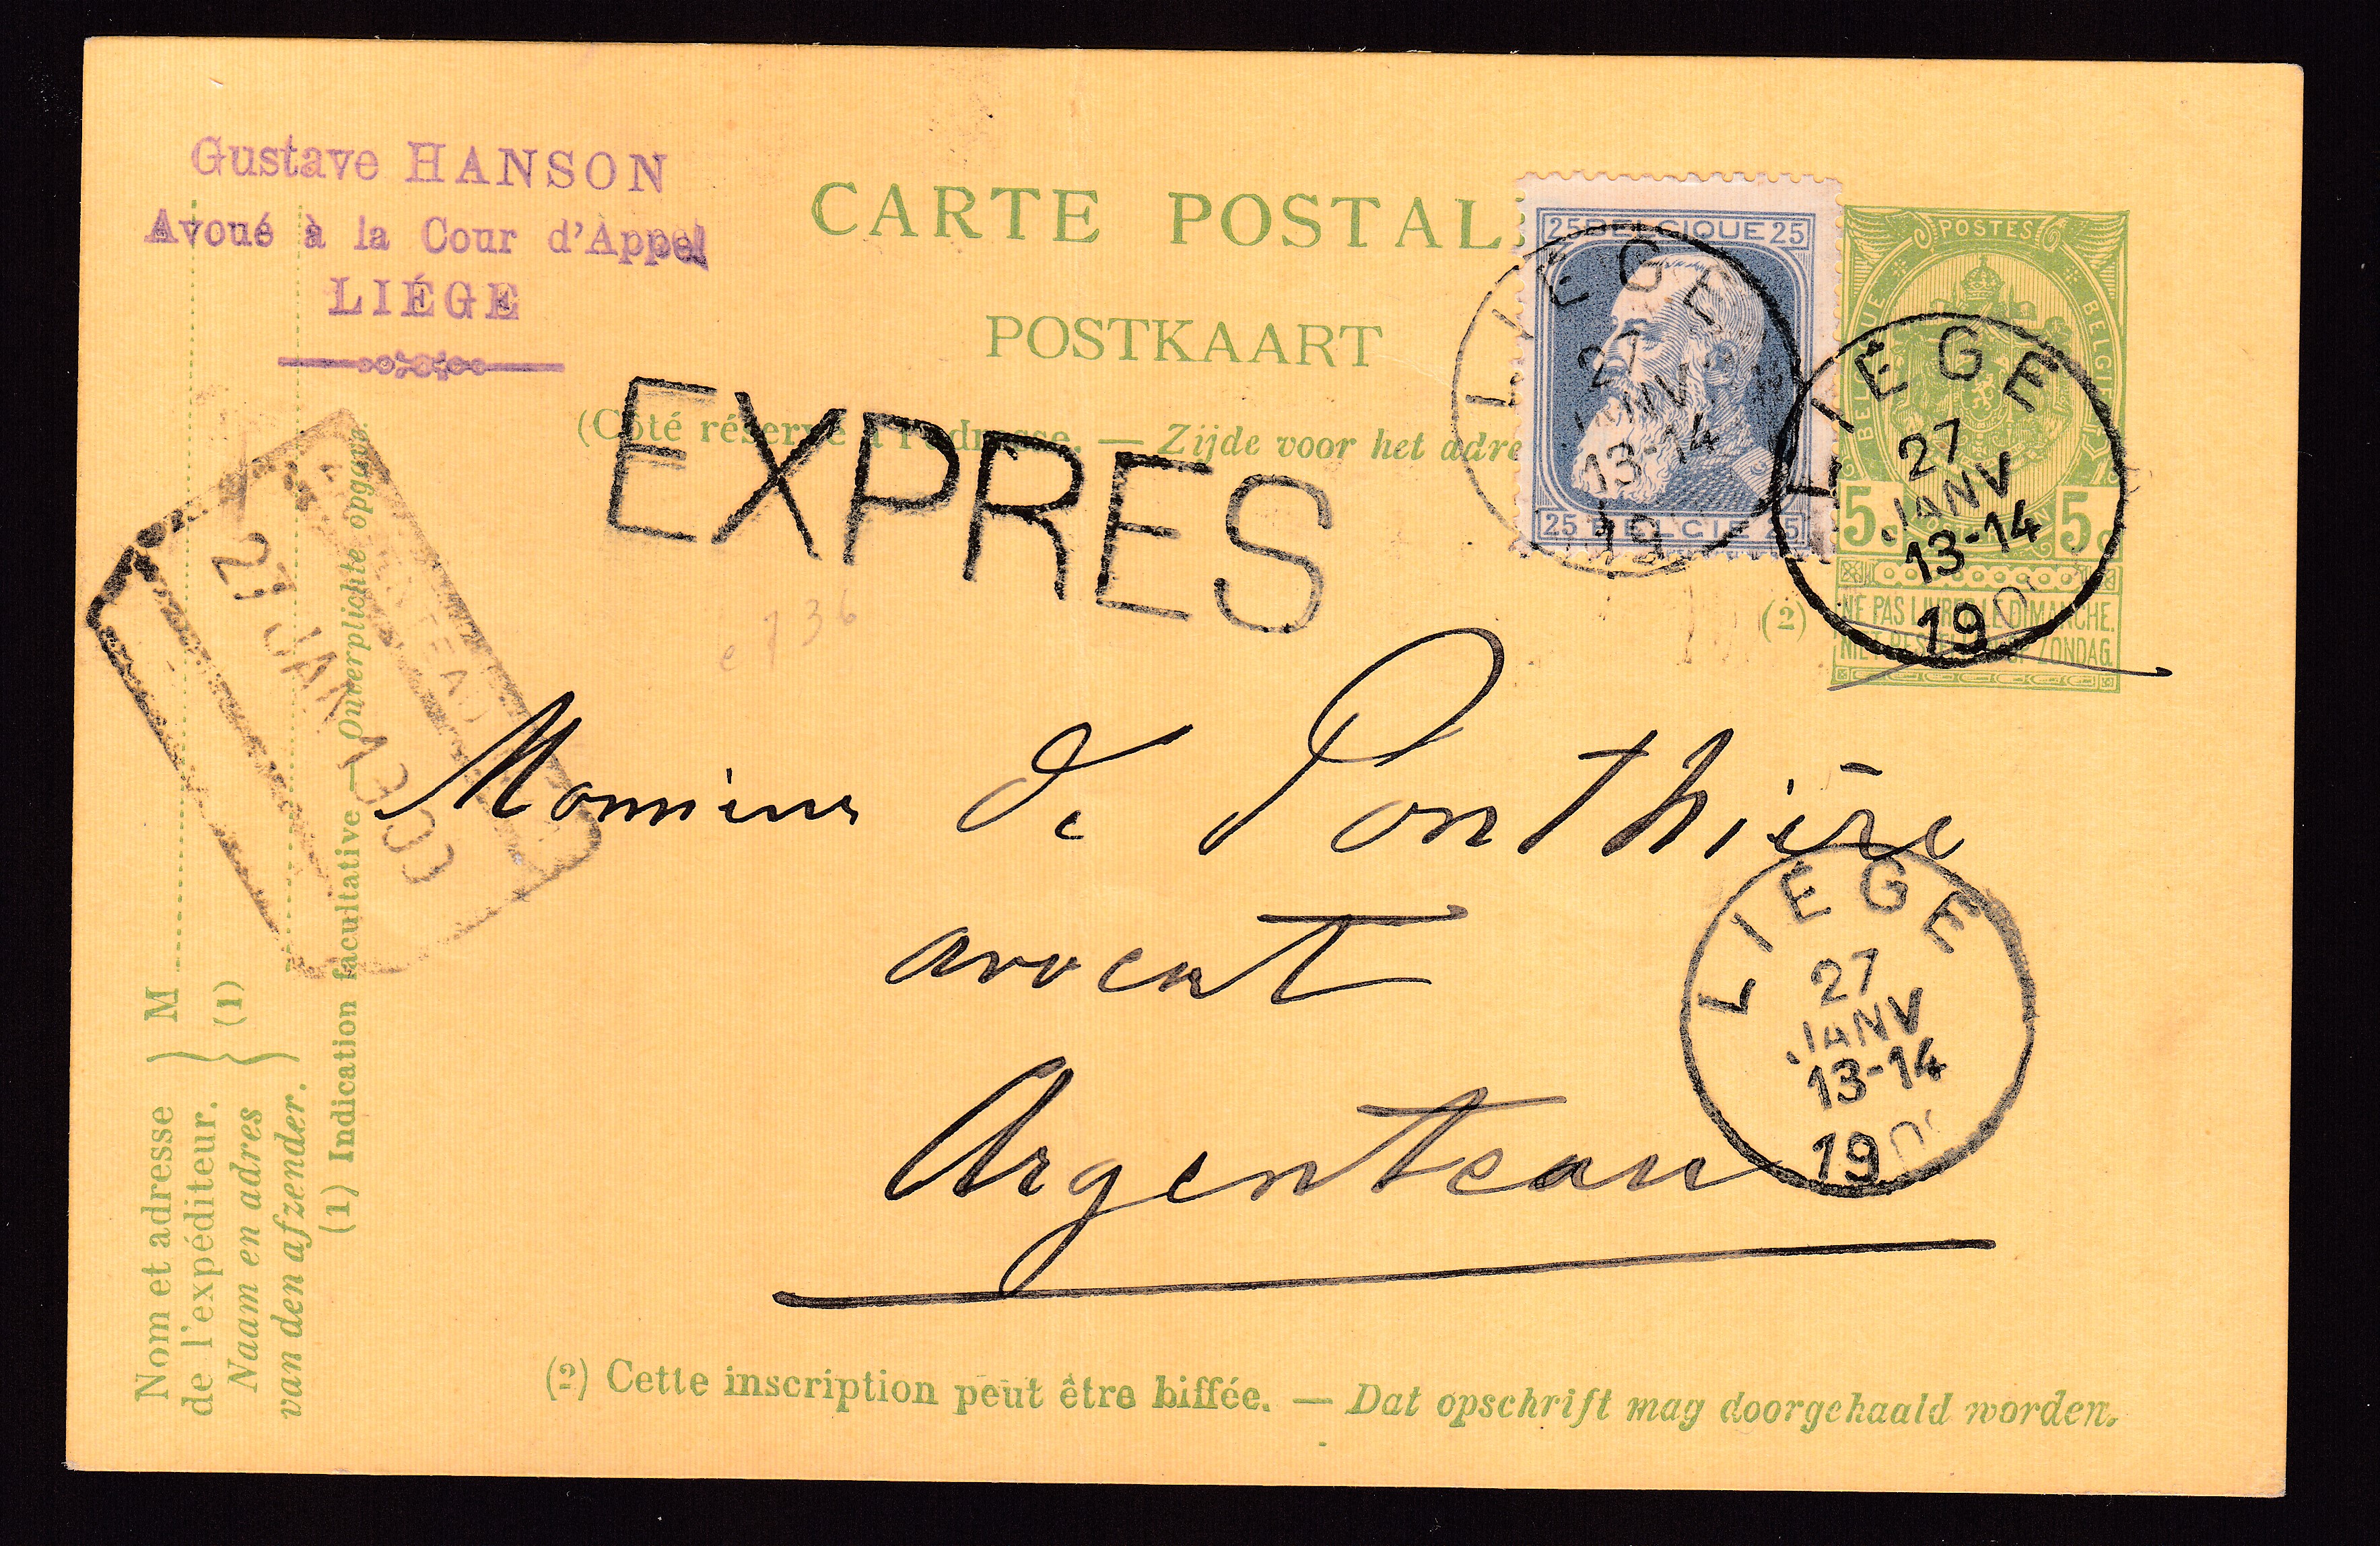 Gustave HANSON
Avoué à la Cour d'Appel
LIÉGE
CARTE POSTAL
POSTKAART
(Côté réservé à l'adresse. — Zijde voor het adre
EXPRES
25 BELGIQUE 25
25 BELGIE 25
LIEGE
27
JANV
13-14
19
POSTES
BELGIQUE
BELGIE
5c
5c
(2)
NE PAS LIVRER LE DIMANCHE.
NIET BESTELLEN OP ZONDAG.
LIEGE
27
JANV
13-14
19
e 736
Monsieur de Ponthière
avocat
Argenteau
LIEGE
27
JANV
13-14
19
27 JAN
Nom et adresse
de l'expéditeur.
Naam en adres
van den afzender.
M
(1)
(1) Indication facultative — Onverplichte opgave.
(2) Cette inscription peut être biffée. — Dat opschrift mag doorgehaald worden.